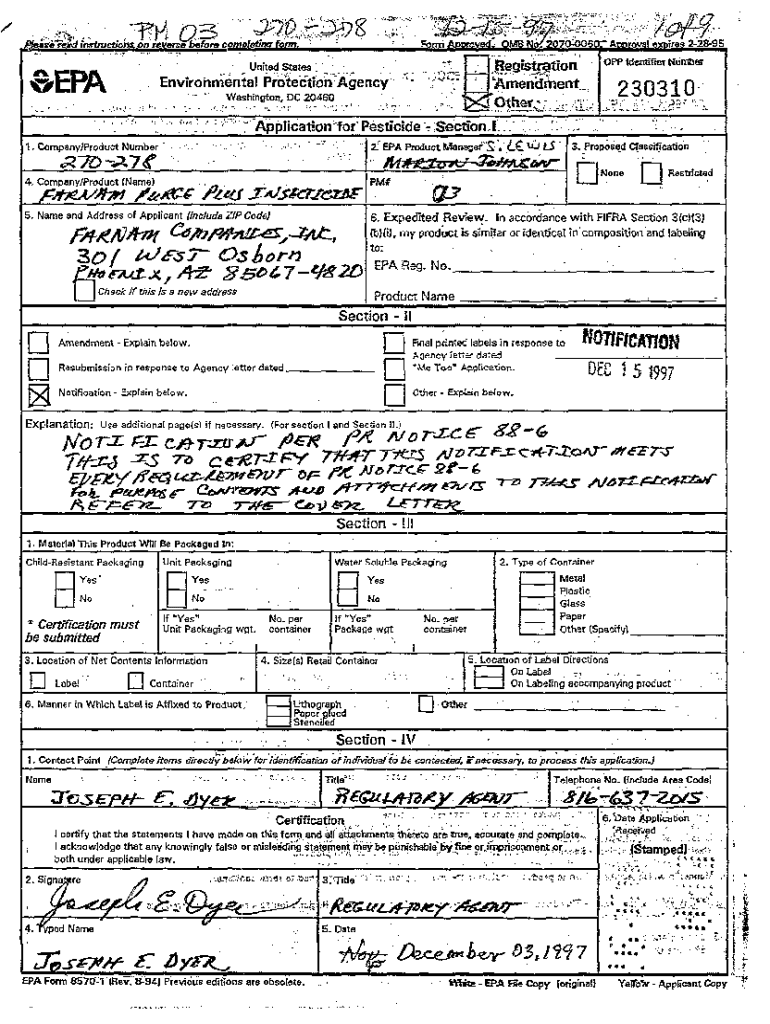 PM 03 270-278 12-15-97 1 of 9
Please read instructions on reverse before completing form. Form Approved. OMB No. 2070-0060. Approval expires 2-28-95
EPA
United States
Environmental Protection Agency
Washington, DC 20460
Registration
Amendment
Other
OPP Identifier Number
230310
Application for Pesticide - Section I
1. Company/Product Number
270-278
2. EPA Product Manager S. LEWIS
MARION JOHNSON
3. Proposed Classification
None Restricted
4. Company/Product (Name)
FARNAM PURGE PLUS INSECTICIDE
PM#
03
5. Name and Address of Applicant (Include ZIP Code)
FARNAM COMPANIES, INC,
301 WEST Osborn
PHOENIX, AZ 85067-4820
Check if this is a new address
6. Expedited Review. In accordance with FIFRA Section 3(c)(3)
(b)(i), my product is similar or identical in composition and labeling
to:
EPA Reg. No.
Product Name
Section - II
Amendment - Explain below.
Resubmission in response to Agency letter dated
Notification - Explain below.
Final printed labels in response to
Agency letter dated
"Me Too" Application.
Other - Explain below.
NOTIFICATION
DEC 15 1997
Explanation: Use additional page(s) if necessary. (For section I and Section II.)
NOTIFICATION PER PR NOTICE 88-6
THIS IS TO CERTIFY THAT THIS NOTIFICATION MEETS
EVERY REQUIREMENT OF PR NOTICE 88-6
FOR PURPOSE CONTENTS AND ATTACHMENTS TO THIS NOTIFICATION
REFER TO THE COVER LETTER
Section - III
1. Material This Product Will Be Packaged In:
Child-Resistant Packaging
Yes*
No
* Certification must
be submitted
Unit Packaging
Yes
No
If "Yes" No. per
Unit Packaging wgt. container
Water Soluble Packaging
Yes
No
If "Yes" No. per
Package wgt container
2. Type of Container
Metal
Plastic
Glass
Paper
Other (Specify)
3. Location of Net Contents Information
Label Container
4. Size(s) Retail Container
5. Location of Label Directions
On Label
On Labeling accompanying product
6. Manner in Which Label is Affixed to Product
Lithograph
Paper glued
Stenciled
Other
Section - IV
1. Contact Point (Complete items directly below for identification of individual to be contacted, if necessary, to process this application.)
Name
JOSEPH E. DYER
Title
REGULATORY AGENT
Telephone No. (Include Area Code)
816-637-2015
Certification
I certify that the statements I have made on this form and all attachments thereto are true, accurate and complete.
I acknowledge that any knowingly false or misleading statement may be punishable by fine or imprisonment or
both under applicable law.
6. Date Application
Received
(Stamped)
2. Signature
Joseph E. Dyer
3. Title
REGULATORY AGENT
4. Typed Name
JOSEPH E. DYER
5. Date
Nov December 03, 1997
EPA Form 8570-1 (Rev. 8-94) Previous editions are obsolete. White - EPA File Copy (original) Yellow - Applicant Copy